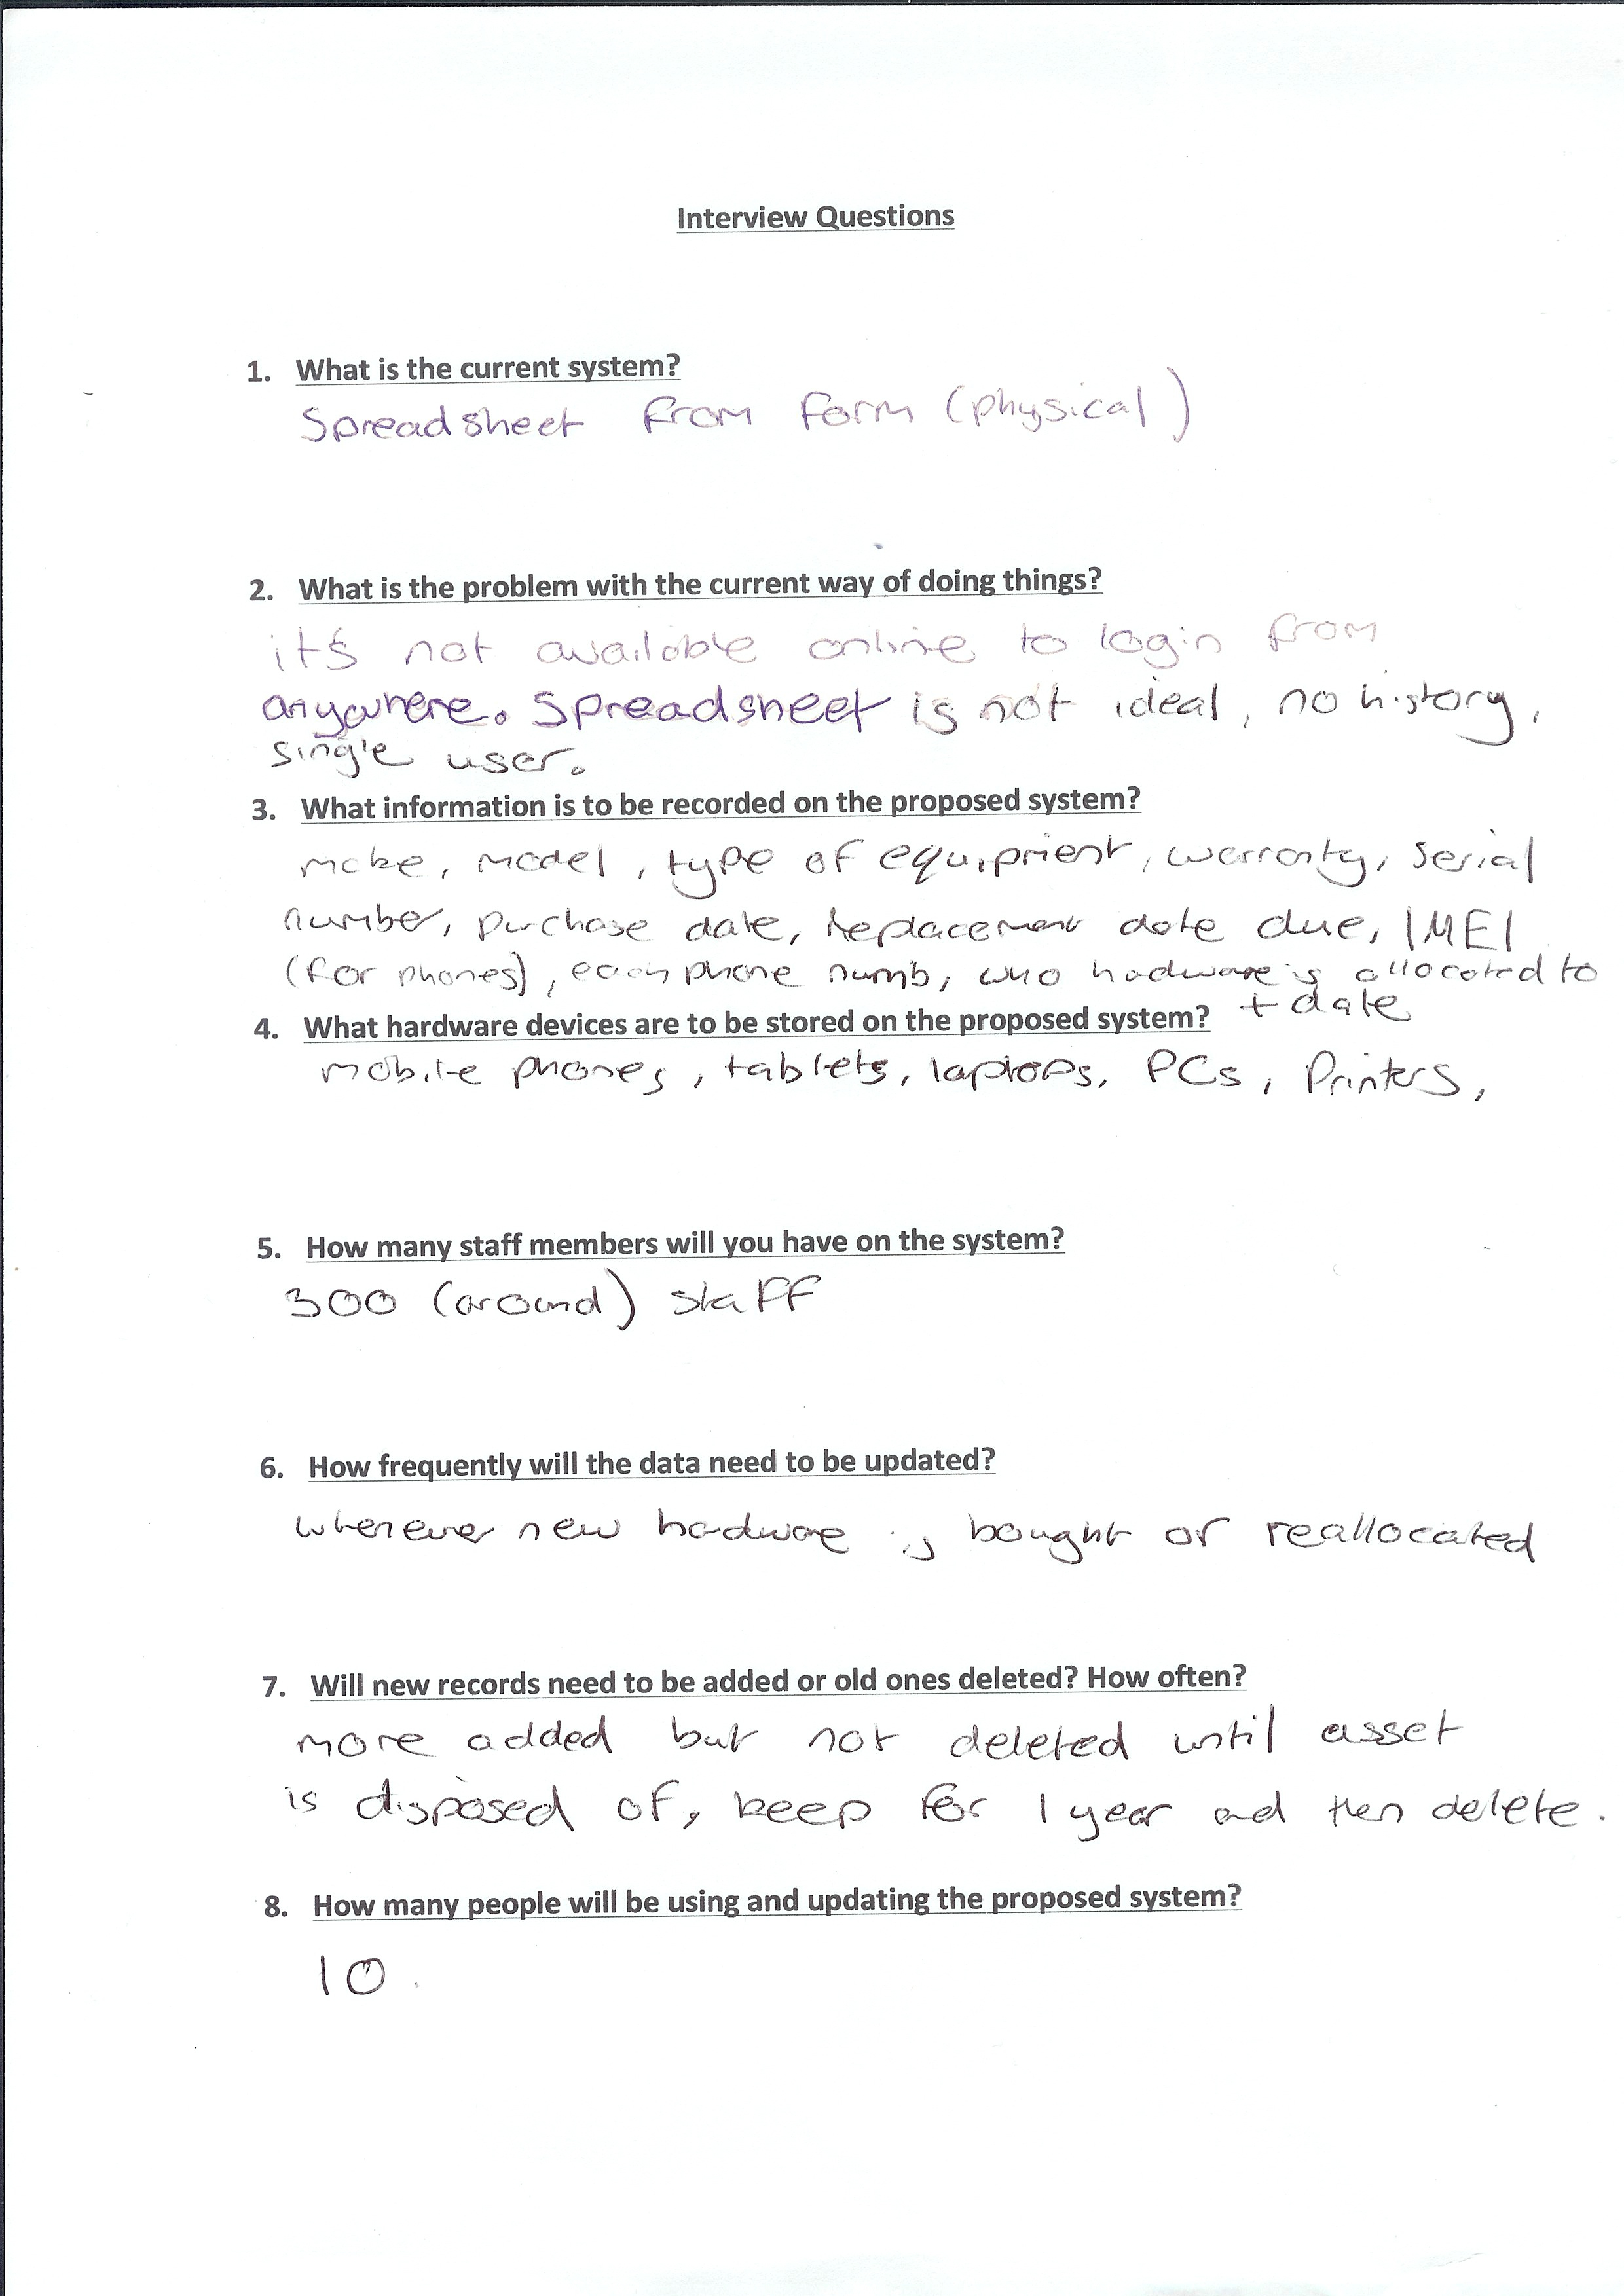 Interview Questions
1. What is the current system?
Spreadsheet from form (physical)
2. What is the problem with the current way of doing things?
it's not available online to login from
anywhere. Spreadsheet is not ideal, no history,
single user.
3. What information is to be recorded on the proposed system?
make, model, type of equipment, warranty, serial
number, purchase date, replacement date due, IMEI
(for phones), each phone numb, who hardware is allocated to
+ date
4. What hardware devices are to be stored on the proposed system?
mobile phones, tablets, laptops, PCs, Printers,
5. How many staff members will you have on the system?
300 (around) staff
6. How frequently will the data need to be updated?
whenever new hardware is bought or reallocated
7. Will new records need to be added or old ones deleted? How often?
more added but not deleted until asset
is disposed of, keep for 1 year and then delete.
8. How many people will be using and updating the proposed system?
10.